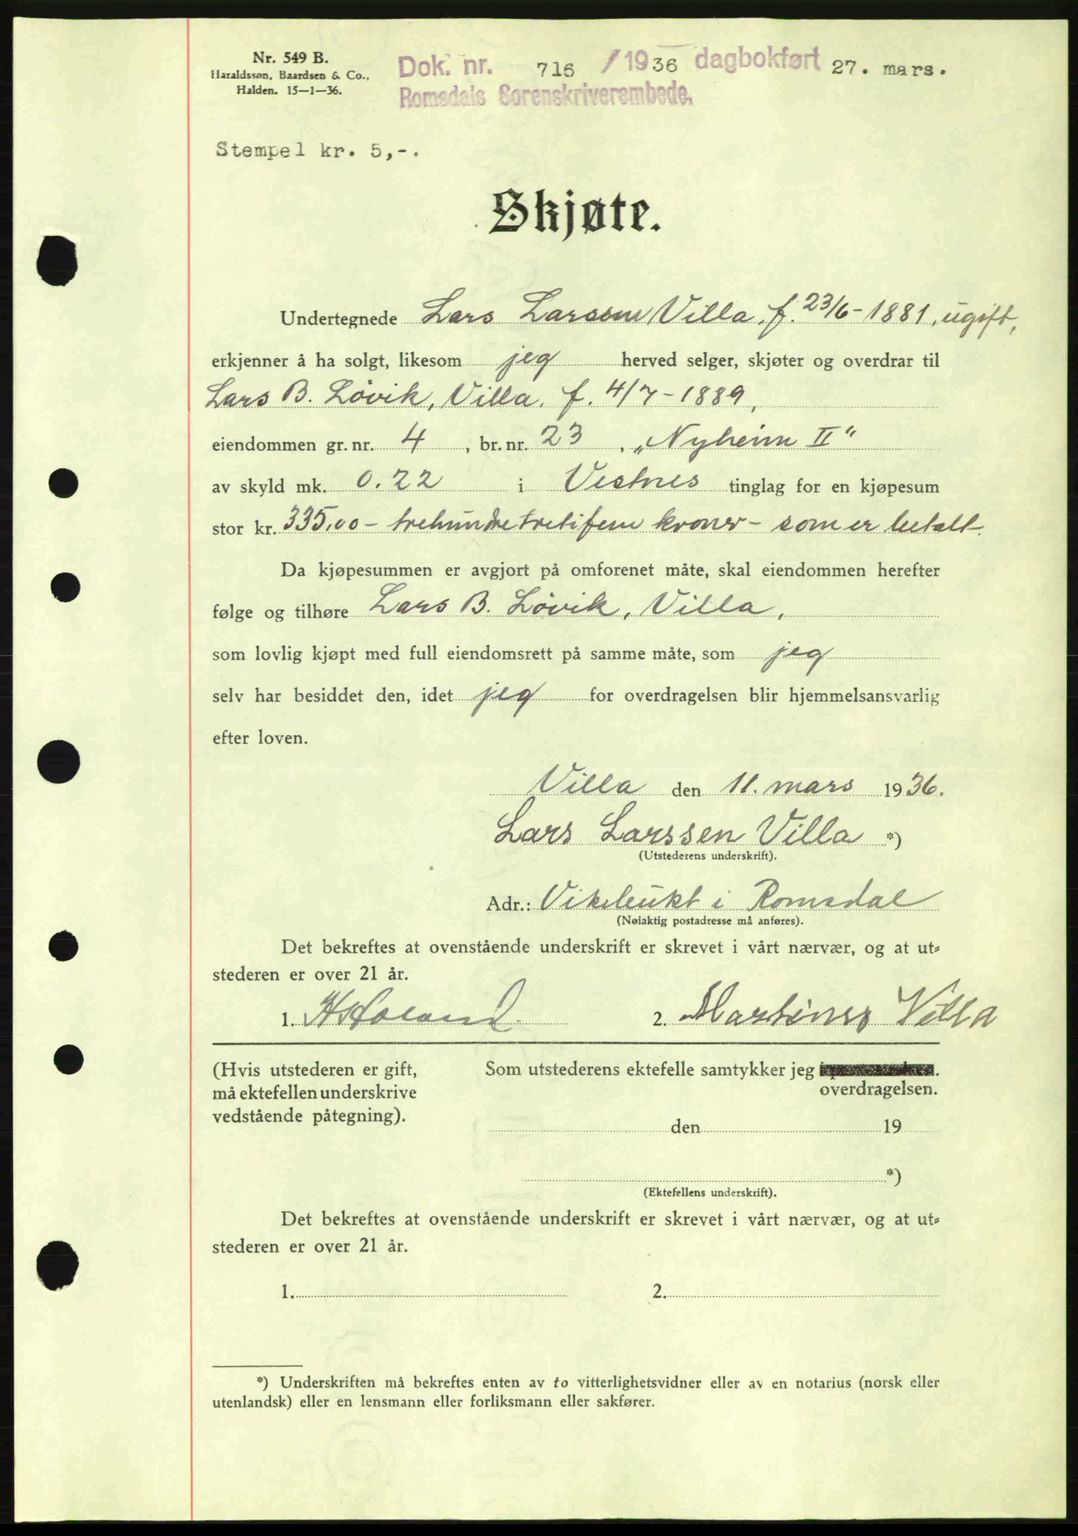 Nr. 549 B.
Haraldssøn, Baardsen & Co.,
Halden. 15—1—36.
Dok. nr. 716 / 1936 dagbokført 27. mars.
Romsdals Sorenskriverembede.
Stempel kr. 5,-.
Skjøte.
Undertegnede Lars Larssen Villa, f. 23/6-1881, ugift,
erkjenner å ha solgt, likesom jeg herved selger, skjøter og overdrar til
Lars B. Løvik, Villa, f. 4/7-1889,
eiendommen gr. nr. 4, br. nr. 23, „Nyheim II"
av skyld mk. 0.22 i Vestnes tinglag for en kjøpesum
stor kr. 335,00 - trehundretretifem kroner - som er betalt.
Da kjøpesummen er avgjort på omforenet måte, skal eiendommen herefter
følge og tilhøre Lars B. Løvik, Villa,
som lovlig kjøpt med full eiendomsrett på samme måte, som jeg
selv har besiddet den, idet jeg for overdragelsen blir hjemmelsansvarlig
efter loven.
Villa den 11. mars 1936.
Lars Larssen Villa *)
(Utstederens underskrift).
Adr.: Vikebukt i Romsdal
(Nøiaktig postadresse må anføres).
Det bekreftes at ovenstående underskrift er skrevet i vårt nærvær, og at ut-
stederen er over 21 år.
1. 2. Martinus Villa
(Hvis utstederen er gift,
må ektefellen underskrive
vedstående påtegning).
Som utstederens ektefelle samtykker jeg .
overdragelsen.
den 19
*)
(Ektefellens underskrift).
Det bekreftes at ovenstående underskrift er skrevet i vårt nærvær, og at ut-
stederen er over 21 år.
1. 2.
*) Underskriften må bekreftes enten av to vitterlighetsvidner eller av en notarius (norsk eller
utenlandsk) eller en lensmann eller forliksmann eller sakfører.